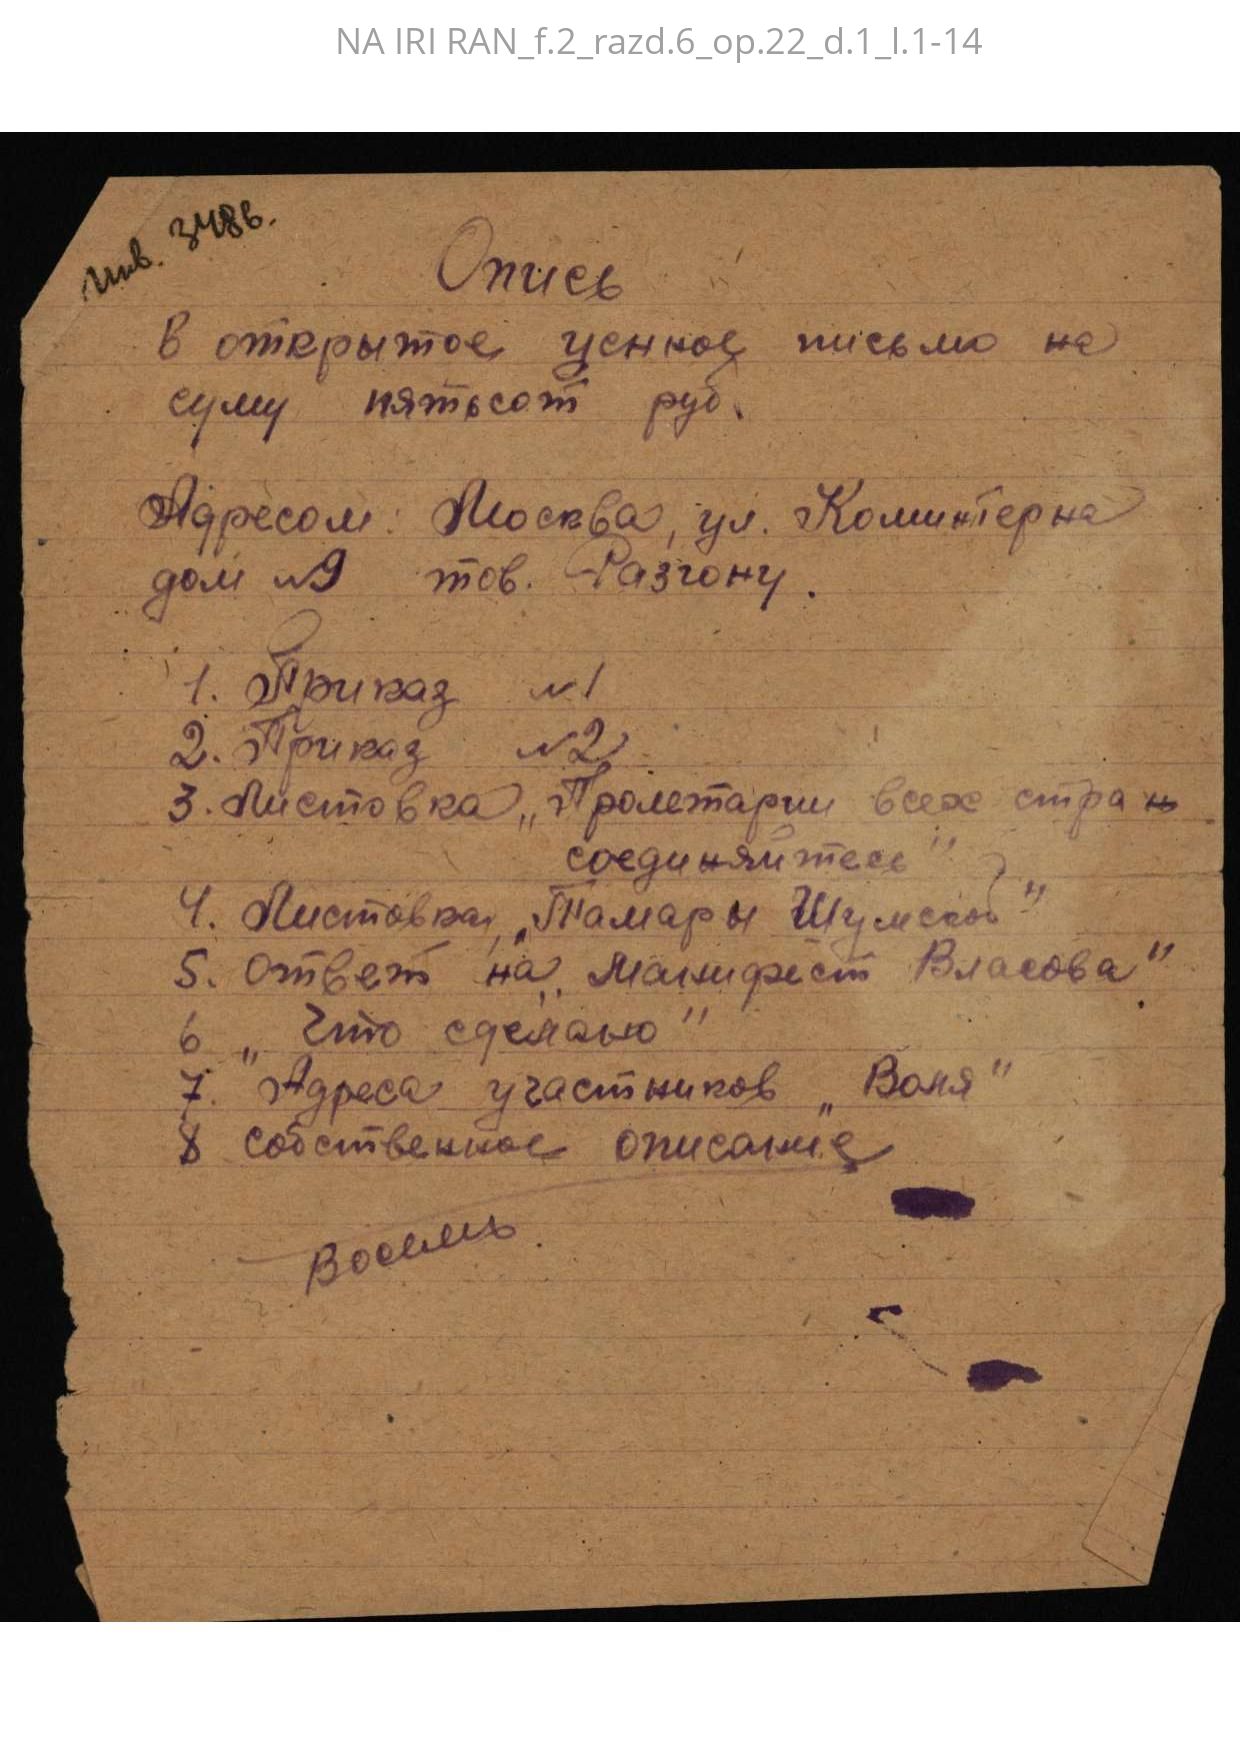 NA IRI RAN_f.2_razd.6_op.22_d.1_l.1-14
Инв. 3486.
Опись
в открытое ценное письмо на
суму пятьсот руб.
Адресом: Москва, ул. Коминтерна
дом №9 тов. Разгону.
1. Приказ №1
2. Приказ №2
3. Листовка „Пролетарии всех стран
соединяйтесь"
4. Листовка „Тамары Шумской"
5. Ответ на „Манифест Власова"
6 „Что сделано"
7. Адреса участников „Воля"
8 собственное описание
Восемь.